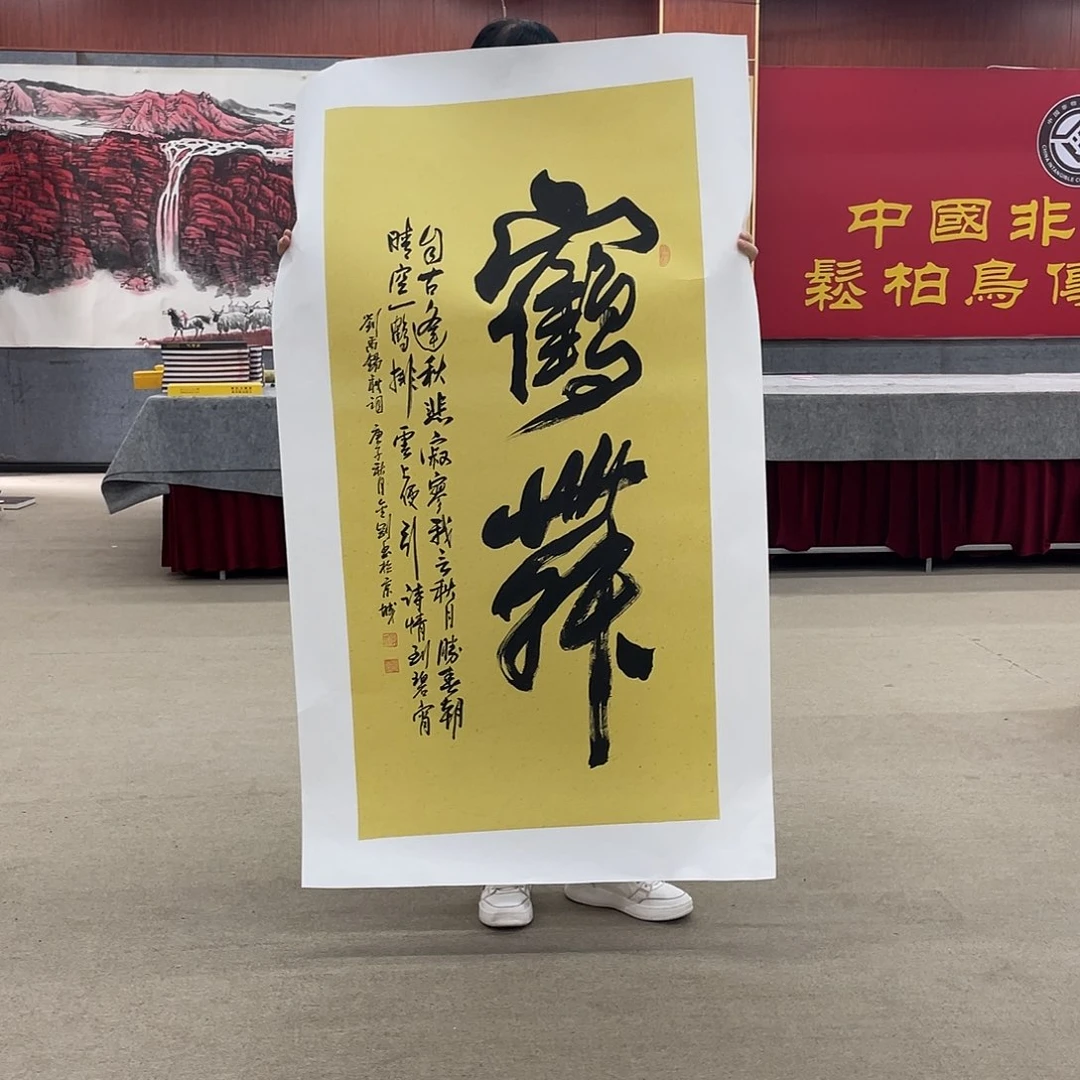 鶴舞
自古逢秋悲寂寥我言秋月勝春朝
晴空一鶴排雲上便引詩情到碧宵
劉禹錫秋詞 庚子秋月金剛書於京城
中國非
鬆柏鳥
CHINA INTANGIBLE